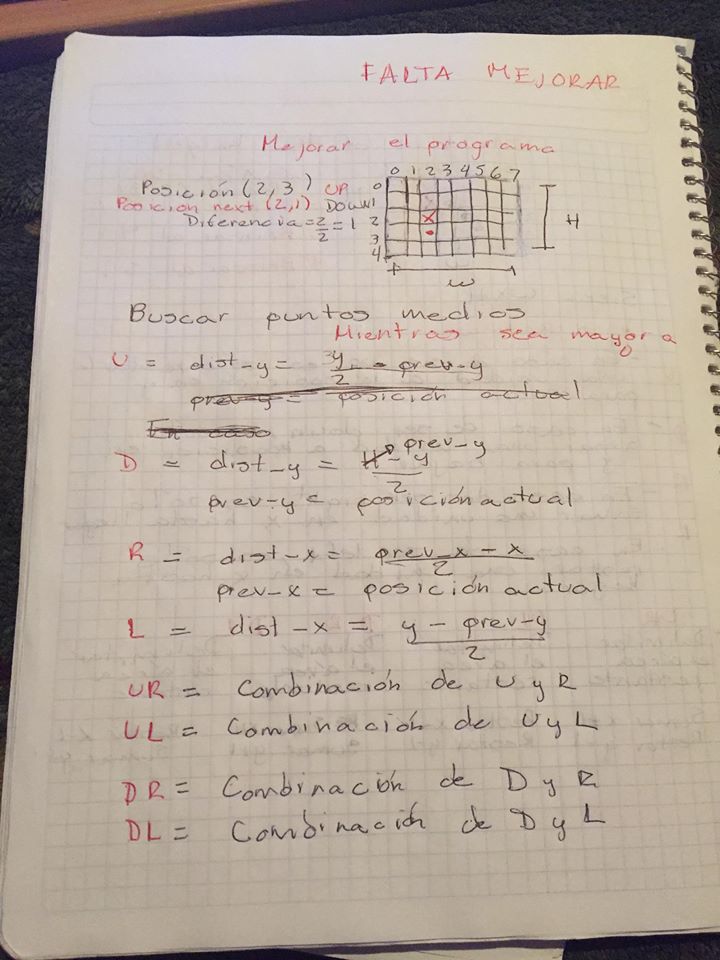 FALTA MEJORAR
Mejorar el programa
0 1 2 3 4 5 6 7
Posición (2,3) UP 0
Posicion next (2,1) DOWN 1
Diferencia = 2/2 = 1 2
3
4
H
W
Buscar puntos medios
Mientras sea mayor a 0
U = dist-y = y - prev-y / 2
prev-y = posición actual
En caso
D = dist-y = H prev-y - y / 2
prev-y = posición actual
R = dist-x = prev-x - x / 2
prev-x = posición actual
L = dist-x = y - prev-y / 2
UR = Combinación de U y R
UL = Combinación de U y L
DR = Combinación de D y R
DL = Combinación de D y L